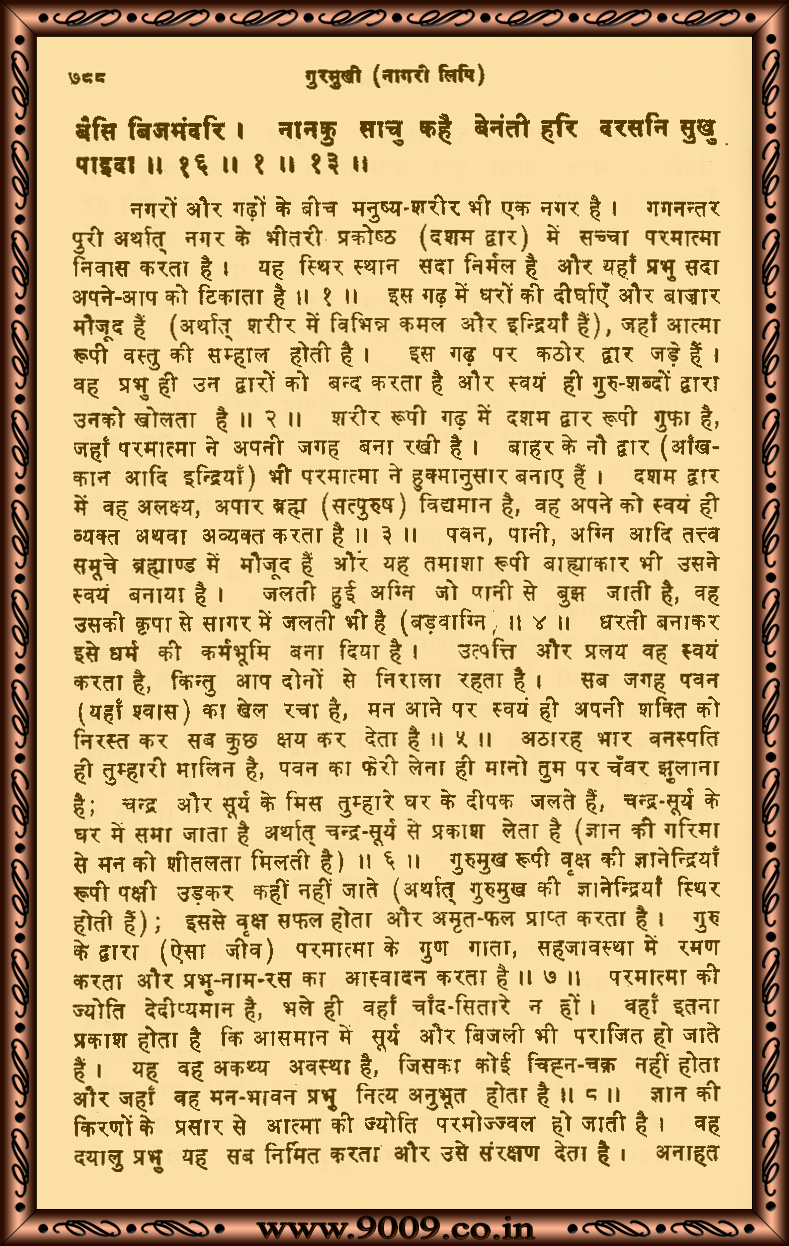 ७८८ गुरमुखी (नागरी लिपि)
बैसि बिजमंदरि । नानकु साचु कहै बेनंती हरि दरसनि सुखु
पाइदा ॥ १६ ॥ १ ॥ १३ ॥
नगरों और गढ़ों के बीच मनुष्य-शरीर भी एक नगर है । गगनन्तर
पुरी अर्थात् नगर के भीतरी प्रकोष्ठ (दशम द्वार) में सच्चा परमात्मा
निवास करता है । यह स्थिर स्थान सदा निर्मल है और यहाँ प्रभु सदा
अपने-आप को टिकाता है ॥ १ ॥ इस गढ़ में धरों की दीर्घाएँ और बाज़ार
मौजूद हैं (अर्थात् शरीर में विभिन्न कमल और इन्द्रियाँ हैं), जहाँ आत्मा
रूपी वस्तु की सम्हाल होती है । इस गढ़ पर कठोर द्वार जड़े हैं ।
वह प्रभु ही उन द्वारों को बन्द करता है और स्वयं ही गुरु-शब्दों द्वारा
उनको खोलता है ॥ २ ॥ शरीर रूपी गढ़ में दशम द्वार रूपी गुफा है,
जहाँ परमात्मा ने अपनी जगह बना रखी है । बाहर के नौ द्वार (आँख-
कान आदि इन्द्रियाँ) भी परमात्मा ने हुक्मानुसार बनाए हैं । दशम द्वार
में वह अलक्ष्य, अपार ब्रह्म (सत्पुरुष) विद्यमान है, वह अपने को स्वयं ही
व्यक्त अथवा अव्यक्त करता है ॥ ३ ॥ पवन, पानी, अग्नि आदि तत्त्व
समूचे ब्रह्माण्ड में मौजूद हैं और यह तमाशा रूपी बाह्याकार भी उसने
स्वयं बनाया है । जलती हुई अग्नि जो पानी से बुझ जाती है, वह
उसकी कृपा से सागर में जलती भी है (बड़वाग्नि, ॥ ४ ॥ धरती बनाकर
इसे धर्म की कर्मभूमि बना दिया है । उत्पत्ति और प्रलय वह स्वयं
करता है, किन्तु आप दोनों से निराला रहता है । सब जगह पवन
(यहाँ श्वास) का खेल रचा है, मन आने पर स्वयं ही अपनी शक्ति को
निरस्त कर सब कुछ क्षय कर देता है ॥ ५ ॥ अठारह भार वनस्पति
ही तुम्हारी मालिन है, पवन का फेरी लेना ही मानो तुम पर चँवर झुलाना
है; चन्द्र और सूर्य के मिस तुम्हारे घर के दीपक जलते हैं, चन्द्र-सूर्य के
घर में समा जाता है अर्थात् चन्द्र-सूर्य से प्रकाश लेता है (ज्ञान की गरिमा
से मन को शीतलता मिलती है) ॥ ६ ॥ गुरुमुख रूपी वृक्ष की ज्ञानेन्द्रियाँ
रूपी पक्षी उड़कर कहीं नहीं जाते (अर्थात् गुरुमुख की ज्ञानेन्द्रियाँ स्थिर
होती हैं); इससे वृक्ष सफल होता और अमृत-फल प्राप्त करता है । गुरु
के द्वारा (ऐसा जीव) परमात्मा के गुण गाता, सहजावस्था में रमण
करता और प्रभु-नाम-रस का आस्वादन करता है ॥ ७ ॥ परमात्मा की
ज्योति देदीप्यमान है, भले ही वहाँ चाँद-सितारे न हों । वहाँ इतना
प्रकाश होता है कि आसमान में सूर्य और बिजली भी पराजित हो जाते
हैं । यह वह अकथ्य अवस्था है, जिसका कोई चिह्न-चक्र नहीं होता
और जहाँ वह मन-भावन प्रभु नित्य अनुभूत होता है ॥ ८ ॥ ज्ञान की
किरणों के प्रसार से आत्मा की ज्योति परमोज्ज्वल हो जाती है । वह
दयालु प्रभु यह सब निर्मित करता और उसे संरक्षण देता है । अनाहत
www.9009.co.in